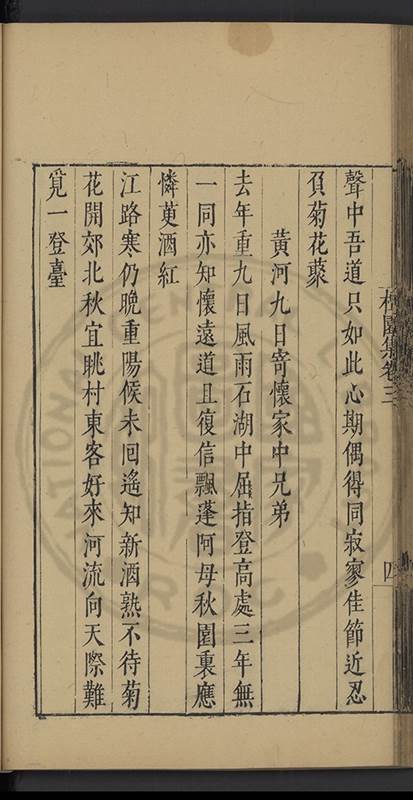 聲中吾道只如此心期偶得同寂寥佳節近忍
負菊花藂
黃河九日寄懷家中兄弟
去年重九日風雨石湖中屈指登高處三年無
一同亦知懷遠道且復信飄蓬阿母秋園裏應
憐萸酒紅
江路寒仍晚重陽候未回遙知新酒熟不待菊
花開郊北秋宜眺村東客好來河流向天際難
覓一登臺
園集卷三
四